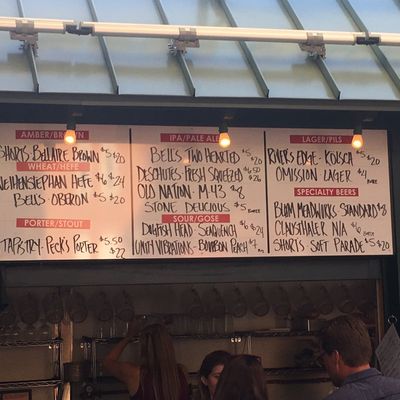 AMBER/BROWN
SHORTS BELLAIRE BROWN $5 $20
WHEAT/HEFE
WEIHENSTEPHAN HEFE $6 $24
BELLS OBERON $5 $20
PORTER/STOUT
TAPISTRY PECK'S PORTER $5.50 $22
IPA/PALE ALE
BELLS TWO HEARTED $5 $20
DESCHUTES FRESH SQUEEZED $6.50 $26
OLD NATION M 43 $8
STONE DELICIOUS $5
SOUR/GOSE
DOGFISH HEAD SEAQUENCH $6 $24
UNITY VIBRATIONS BOURBON PEACH $7
LAGER/PILS
RIVERS EDGE KOLSCH $5 $20
OMISSION LAGER $4
SPECIALTY BEERS
BLOM MEADWORKS STANDARD $8
CLAUSTHALER N/A $6
SHORTS SOFT PARADE $5 $20